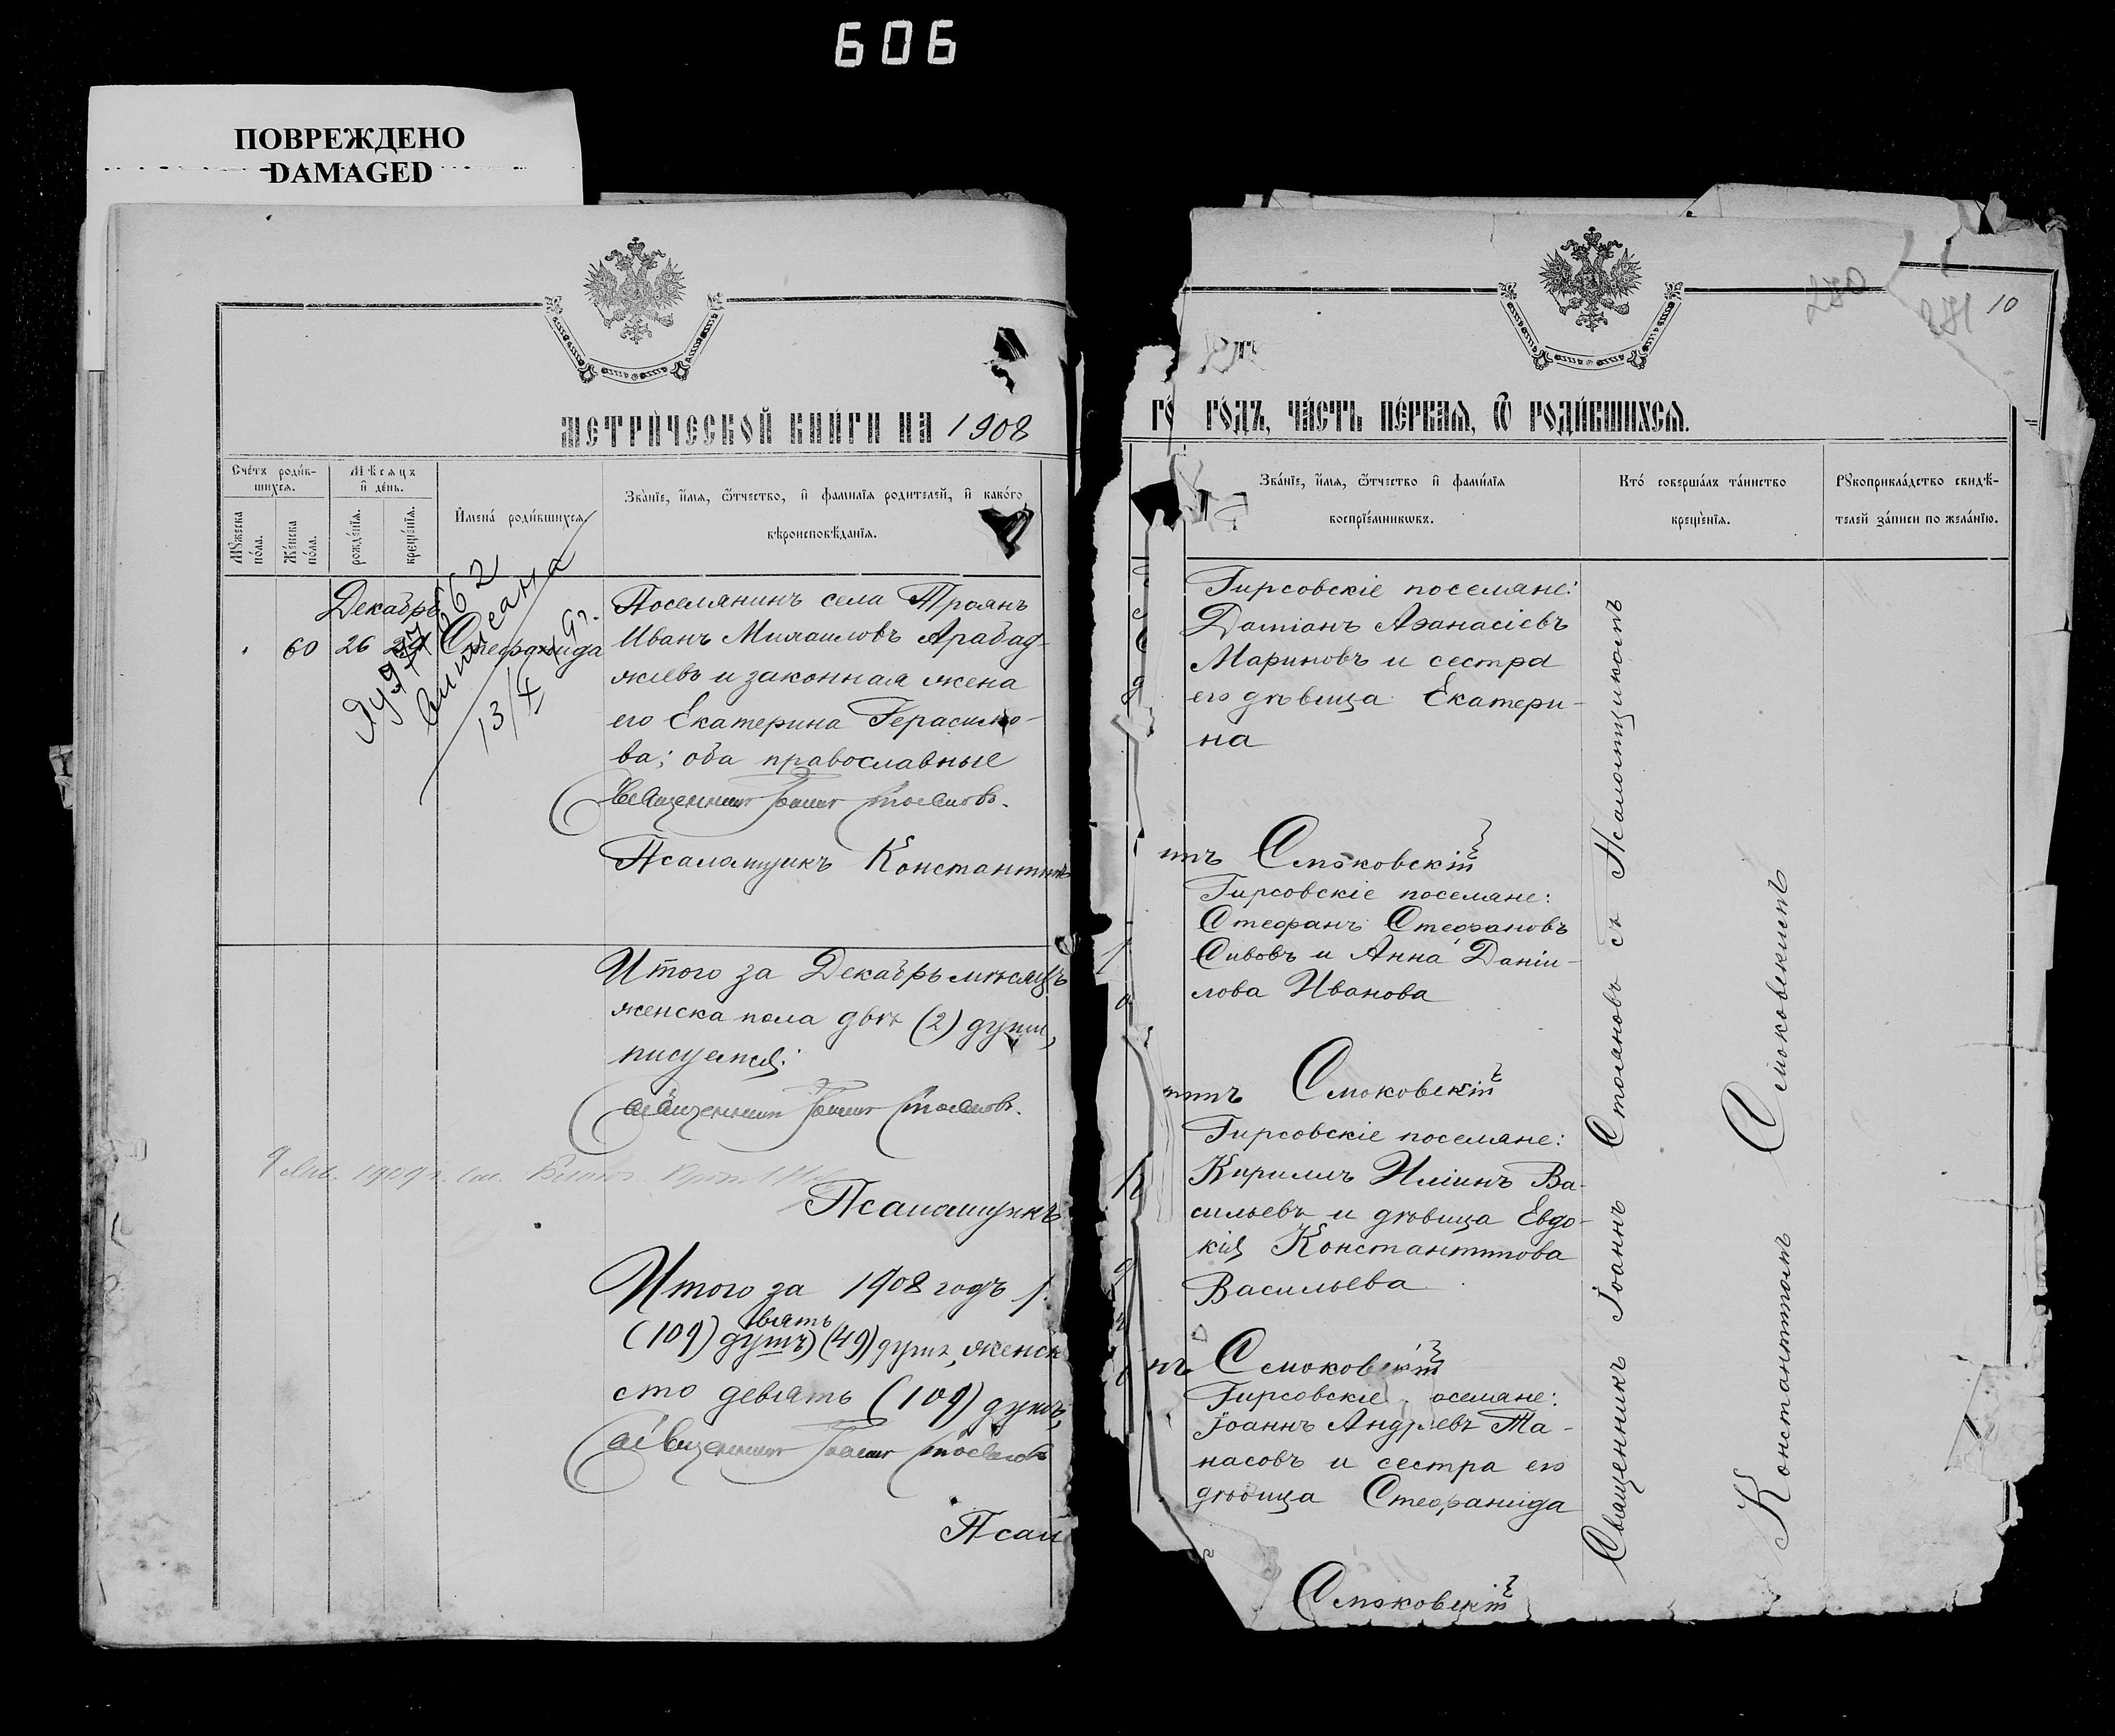 606
ПОВРЕЖДЕНО
DAMAGED
МЕТРИЧЕСКОЙ КНИГИ НА 1908
Счетъ родив-
шихся.
Мѣсяцъ
и день.
Имена родившихся.
Званіе, имя, ѿтчество, и фамилія родителей, и какого
вѣроисповѣданія.
Мꙋжеска
пола.
Женска
пола.
рожденія.
крещенія.
Декабрь
60 26 Стефанида
Поселянинъ села Троянъ
Иванъ Михаиловъ Арабад-
жіевъ и законная жена
его Екатерина Герасимо-
ва; оба православные
Священникъ Іоаннъ Стояновъ.
Псаломщикъ Константинъ
Итого за Декабрь мѣсяцъ
женска пола двѣ (2) души,
писуемся:
Священникъ Іоаннъ Стояновъ.
1909 г.
Псаломщикъ
Итого за 1908 годъ
вять
(109) душъ) (49) душъ, женск
сто девять (109) душъ,
Священникъ Іоаннъ Стояновъ
Псал
280
281 10
ГО ГОДЪ, ЧАСТЬ ПЕРВАЯ, Ѿ РОДИВШИХСЯ.
Званіе, имя, ѿтчество и фамилія
воспріемниковъ.
Кто совершалъ таинство
крещенія.
Рꙋкоприкладство свидѣ-
телей записи по желанію.
Гирсовскіе поселяне:
Даміанъ Аѳанасіевъ
Мариновъ и сестра
его дѣвица Екатери-
на
инъ Смоковскій
Гирсовскіе поселяне:
Стефанъ Стефановъ
Сивовъ и Анна Даніи-
лова Иванова
тинъ Смоковскій
Гирсовскіе поселяне:
Кириллъ Иліинъ Ва-
сильевъ и дѣвица Евдо-
кія Константинова
Васильева
нъ Смоковскій
Гирсовскіе оселяне:
Іоаннъ Андреевъ Та-
насовъ и сестра его
дѣвица Стефанида
Смоковскій
Священникъ Іоаннъ Стояновъ съ Псаломщикомъ
Константиномъ Смоковскимъ